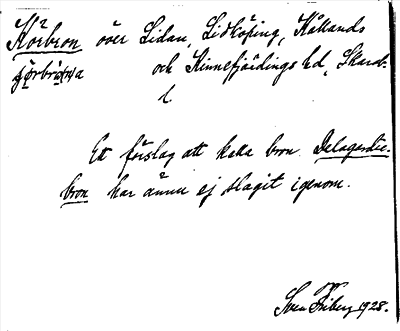 Körbron över Lidan, Lidköping, Kållands
och Kinnefjärdings hd, Skarab.
l
Ett förslag att kalla bron Delagardie-
bron har ännu ej slagit igenom.
Sven Friberg 1928.